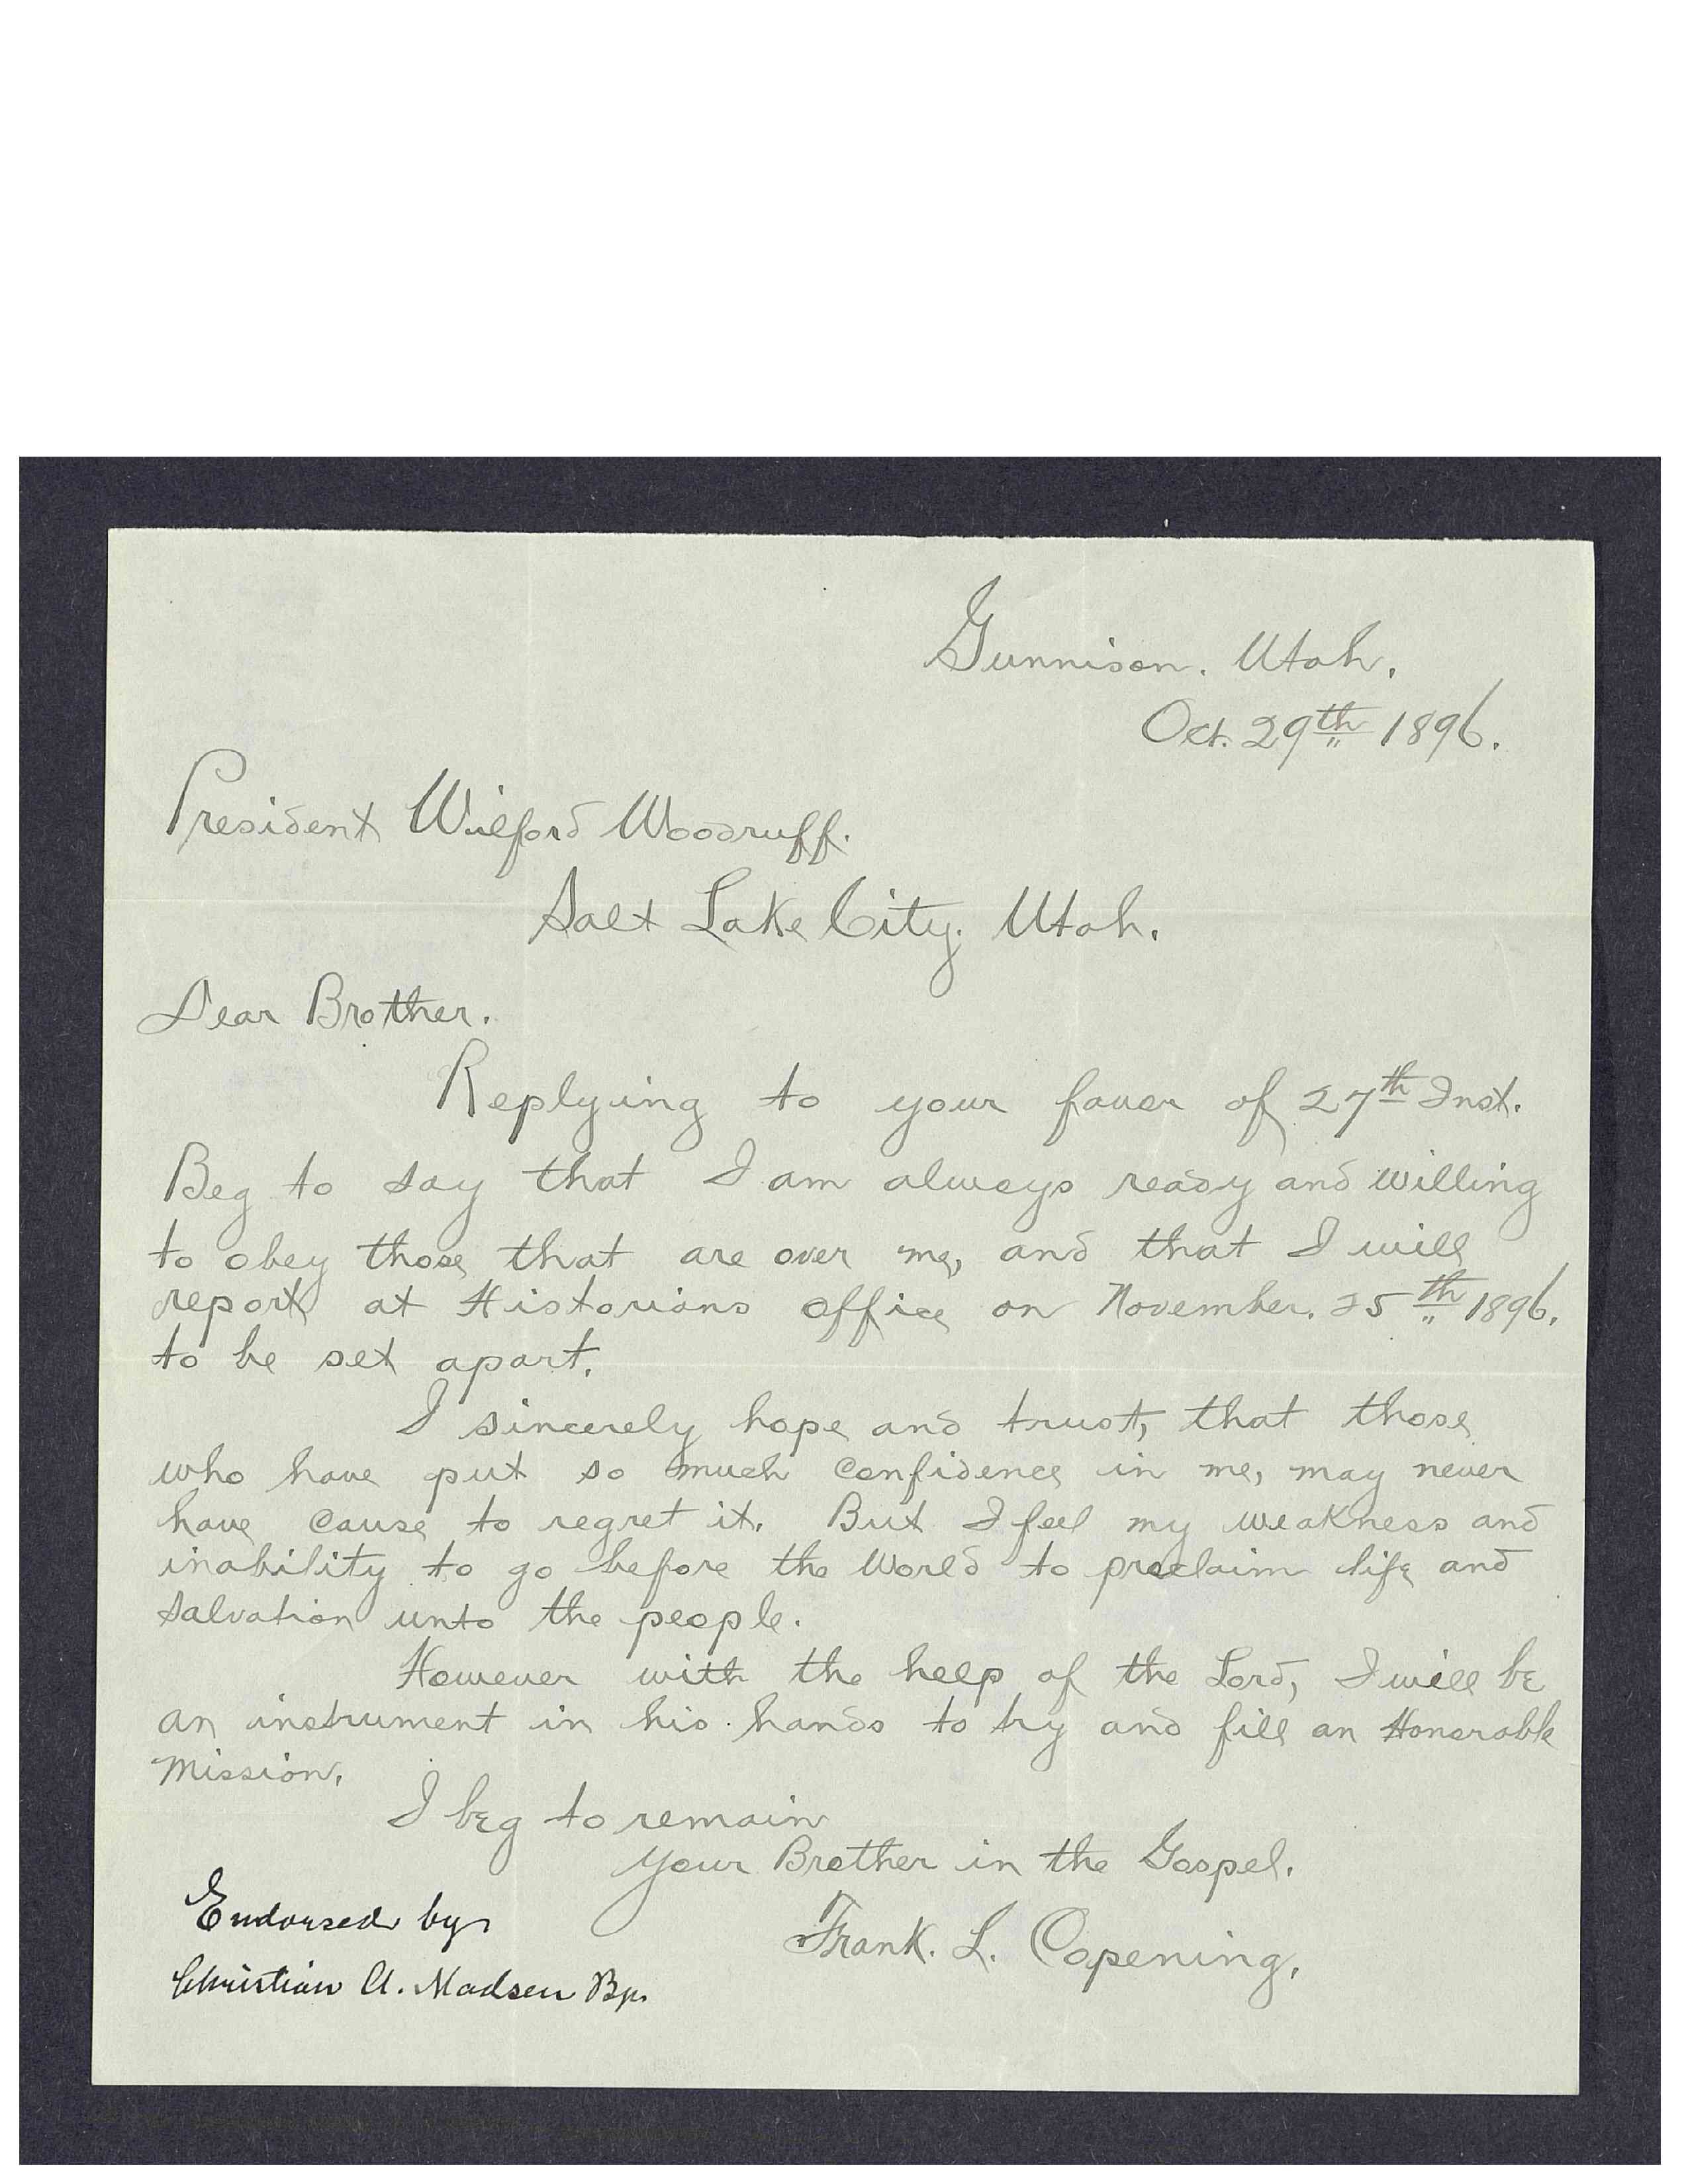 Gunnison. Utah.
Oct. 29th 1896.
President Wilford Woodruff.
Salt Lake City. Utah.
Dear Brother.
Replying to your favor of 27th Inst.
Beg to say that I am always ready and willing
to obey those that are over me, and that I will
report at Historians office on November. 25th 1896.
to be set apart.
I sincerely hope and trust, that those
who have put so much confidence in me, may never
have cause to regret it. But I feel my weakness and
inability to go before the World to proclaim life and
salvation unto the people.
However with the help of the Lord, I will be
an instrument in his hands to try and fill an Honorable
Mission.
I beg to remain
your Brother in the Gospel.
Frank. L. Copening.
Endorsed by
Christian A. Madsen Bp.